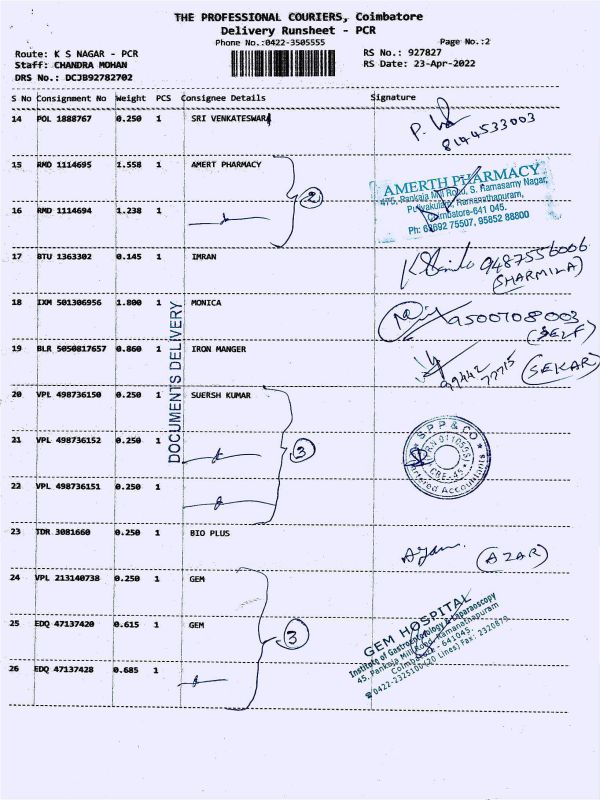 THE PROFESSIONAL COURIERS, Coimbatore
Delivery Runsheet - PCR
Phone No.:0422-3505555 Page No.:2
Route: K S NAGAR - PCR RS No.: 927827
Staff: CHANDRA MOHAN RS Date: 23-Apr-2022
DRS No.: DCJB92782702
S No Consignment No Weight PCS Consignee Details Signature
14 POL 1888767 0.250 1 SRI VENKATESWARA
8144533003
15 RMD 1114695 1.558 1 AMERT PHARMACY
2
AMERTH PHARMACY
475, Pankaja Mill Road, S. Ramasamy Nagar,
Puliyakulam, Ramanathapuram,
Coimbatore-641 045.
Ph: 63692 75507, 95852 88800
16 RMD 1114694 1.238 1
17 BTU 1363302 0.145 1 IMRAN
9487556006
(SHARMILA)
18 IXM 501306956 1.800 1 MONICA
9500708003
(SELF)
DOCUMENTS DELIVERY
19 BLR 5050817657 0.860 1 IRON MANGER
99442 77715 (SEKAR)
20 VPL 498736150 0.250 1 SUERSH KUMAR
21 VPL 498736152 0.250 1
3
S.P.P & CO
CBE-45
Chartered Accountants
22 VPL 498736151 0.250 1
23 TDR 3081660 0.250 1 BIO PLUS
(AZAR)
24 VPL 213140738 0.250 1 GEM
25 EDQ 47137420 0.615 1 GEM
3
GEM HOSPITAL
Institute of Gastroenterology & Laparoscopy
45, Pankaja Mill Road, Ramanathapuram
Coimbatore - 641045.
0422-2325100 (20 Lines) Fax: 2320879
26 EDQ 47137428 0.685 1